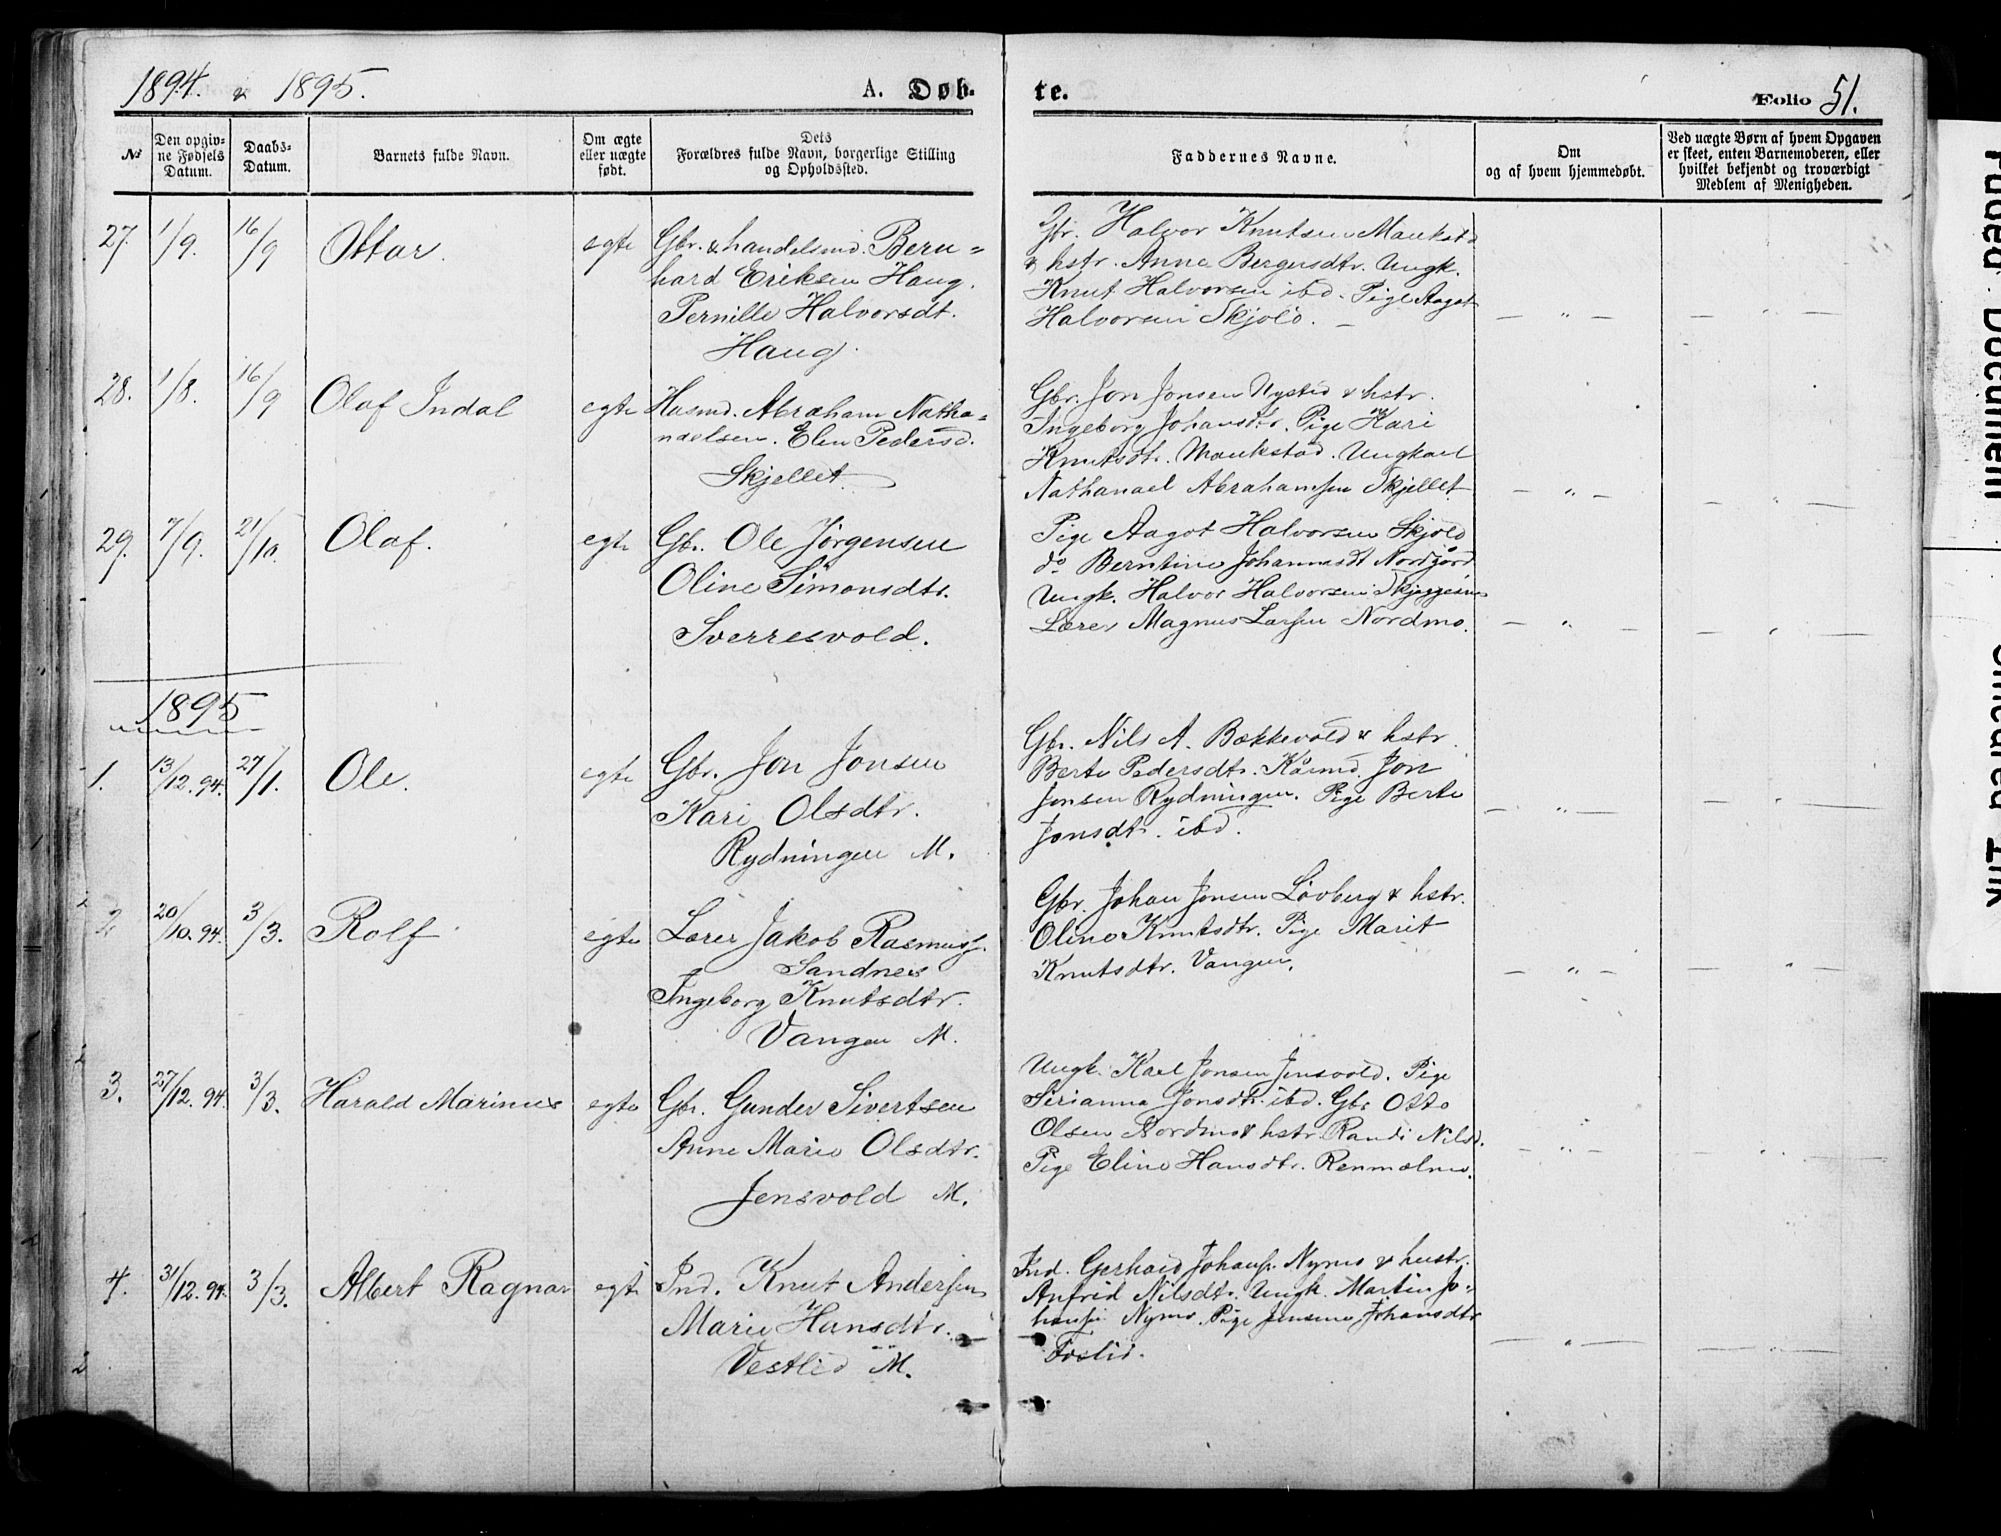 1894. & 1895.
A. Døb-
te.
Folio 51.
No
Den opgiv-
ne Fødsels
Datum.
Daabs-
Datum.
Barnets fulde Navn.
Om ægte
eller uægte
født.
Dets
Forældres fulde Navn, borgerlige Stilling
og Opholdssted.
Faddernes Navne.
Om
og af hvem hjemmedøbt.
Ved uægte Børn af hvem Opgaven
er skeet, enten Barnemoderen, eller
hvilket bekjendt og troværdigt
Medlem af Menigheden.
27. 1/9. 16/9 Ottar. egte
Gbr. & handelsmd. Bern=
hard Eriksen Haug.
Pernille Halvorsdt.
Haug.
Gbr. Halvor Knutsen Maukstad
& hstr. Anne Bergersdtr. Ungk.
Knut Halvorsen ibd. Pige Aagot
Halvorsen Skjold. — „ — — „ —
28. 1/8. 16/9 Olaf Indal egte
Husmd. Abraham Natha=
naelsen. Elen Pedersd.
Skjellet
Gbr. Jon Jonsen Nystid & hstr.
Ingeborg Johansdtr. Pige Kari
Knutsdtr. Maukstad. Ungkarl
Nathanael Abrahamsen Skjellet — „ — — „ —
29. 7/9. 21/10. Olaf. egte
Gbr. Ole Jørgensen
Oline Simonsdtr.
Sverresvold.
Pige Aagot Halvorsen Skjold
do Berntine Johannesdt Nordfjord
Ungk. Halvor Halvorsen
Lærer Magnus Larsen Nordmo. — „ — — „ —
1895
1. 13/12.94. 27/1. Ole. egte
Gbr. Jon Jonsen
Kari Olsdtr.
Rydningen M.
Gbr. Nils A. Bækkevold & hstr.
Berte Pedersdtr. Kårmd. Jon
Jonsen Rydningen. Pige Berte
Jonsdtr. ibd. — „ — — „ —
2 20/10.94. 3/3. Rolf egte
Lærer Jakob Rasmuss.
Sandnes
Ingeborg Knutsdtr.
Vangen M.
Gbr. Johan Jonsen Løvberg & hstr.
Oline Knutsdtr. Pige Marit
Knutsdtr. Vangen. — „ — — „ —
3. 27/12.94. 3/3. Harald Marinus egte
Gbr. Gunder Sivertsen
Anne Marie Olsdtr.
Jensvold M.
Ungk. Karl Jonsen Jensvold. Pige
Serianna Jonsdtr. ibd. Gbr Otto
Olsen Nordmo & hstr. Randi Nilsd.
Pige Eline Hansdtr. Renmælmo. — „ — — „ —
4. 31/12.94. 3/3. Albert Ragnar egte
Ind. Knut Andersen
Marie Hansdtr.
Vestlid M.
Ind. Gerhard Johans. Nymo & hustr.
Anfrid Nilsdtr. Ungk. Martin Jo=
hans. Nymo. Pige Jensine Johansdtr
Foslid. — „ — — „ —
Faded Document
Smeared Ink